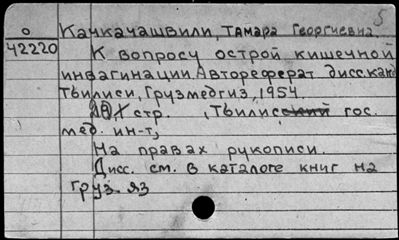 5
о Качкачашвили, Тамара Георгиевна.
42220 К вопросу острой кишечной
инвагинации. Автореферат дисс. канд
Тбилиси, Грузмедгиз, 1954.
стр. , Тбилисский гос.
мед. ин-т,
На правах рукописи.
Дисс. см. в каталоге книг на
груз. яз